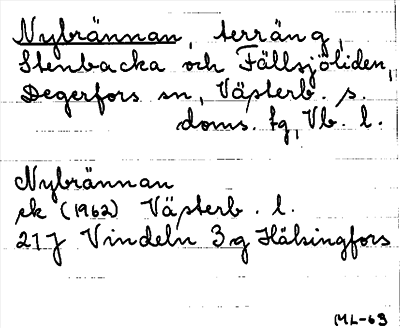 Nybrännan, terräng,
Stenbacka och Fällsjöliden,
Degerfors sn, Västerb. s.
doms. tg, Vb. l.
Nybrännan
ek (1962) Västerb. l.
21J Vindeln 3g Hälsingfors
ML-63